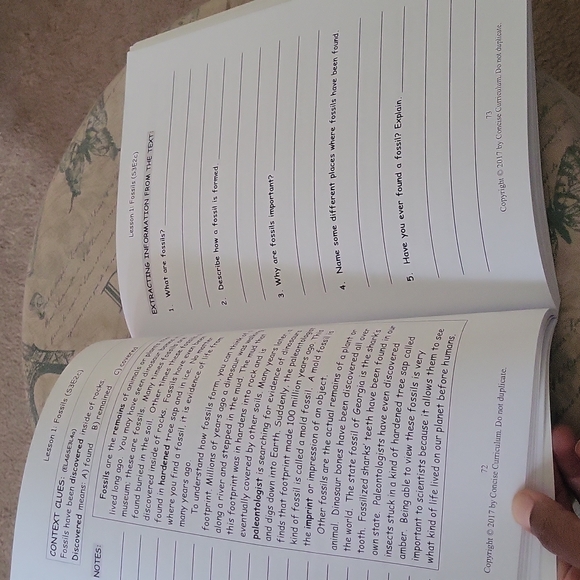 Lesson 1: Fossils (S3E2c)
CONTEXT CLUES: (ELAGSE3L4a)
Fossils have been discovered inside of rocks.
Discovered means: A) found B) remained C) covered
NOTES:
Fossils are the remains of animals or plants
lived long ago. You may have seen dinosaur
museum; these are fossils. Many times fossils
found buried in the soil. Other times these fossils
discovered inside of rocks. Fossils have even
found in hardened tree sap and ice. No matter
where you find a fossil it is evidence of life from
many years ago.
To understand how fossils form, you can think
footprint. Millions of years ago a dinosaur
along a river and stepped in the mud. The mud that
this footprint was in hardens into rock and is
eventually covered by other soils. Many years later
paleontologist is searching for evidence of dinosaurs
and digs down into Earth. Suddenly, the paleontologist
finds that footprint made 100 million years ago. This
kind of fossil is called a mold fossil. A mold fossil is
the imprint or impression of an object.
Other fossils are the actual remains of a plant or
animal. Dinosaur bones have been discovered all over
the world. The state fossil of Georgia is the sharks
tooth. Fossilized sharks teeth have been found in our
own state. Paleontologists have even discovered
insects stuck in a kind of hardened tree sap called
amber. Being able to view these fossils is very
important to scientists because it allows them to see
what kind of life lived on our planet before humans.
72
Copyright © 2017 by Concise Curriculum. Do not duplicate.
Lesson 1: Fossils (S3E2c)
EXTRACTING INFORMATION FROM THE TEXT:
1. What are fossils?
2. Describe how a fossil is formed.
3. Why are fossils important?
4. Name some different places where fossils have been found.
5. Have you ever found a fossil? Explain.
73
Copyright © 2017 by Concise Curriculum. Do not duplicate.